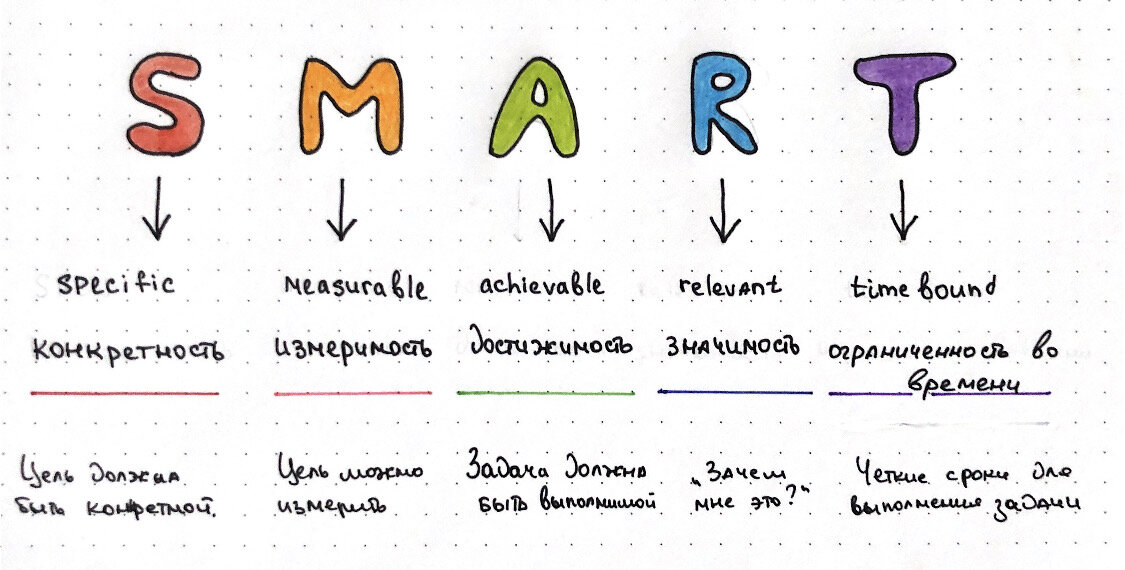 S M A R T
specific measurable achievable relevant time bound
конкретность измеримость достижимость значимость ограниченность во
времени
Цель должна Цель можно Задача должна "Зачем Четкие сроки для
быть конкретной. измерить быть выполнимой мне это?" выполнения задачи